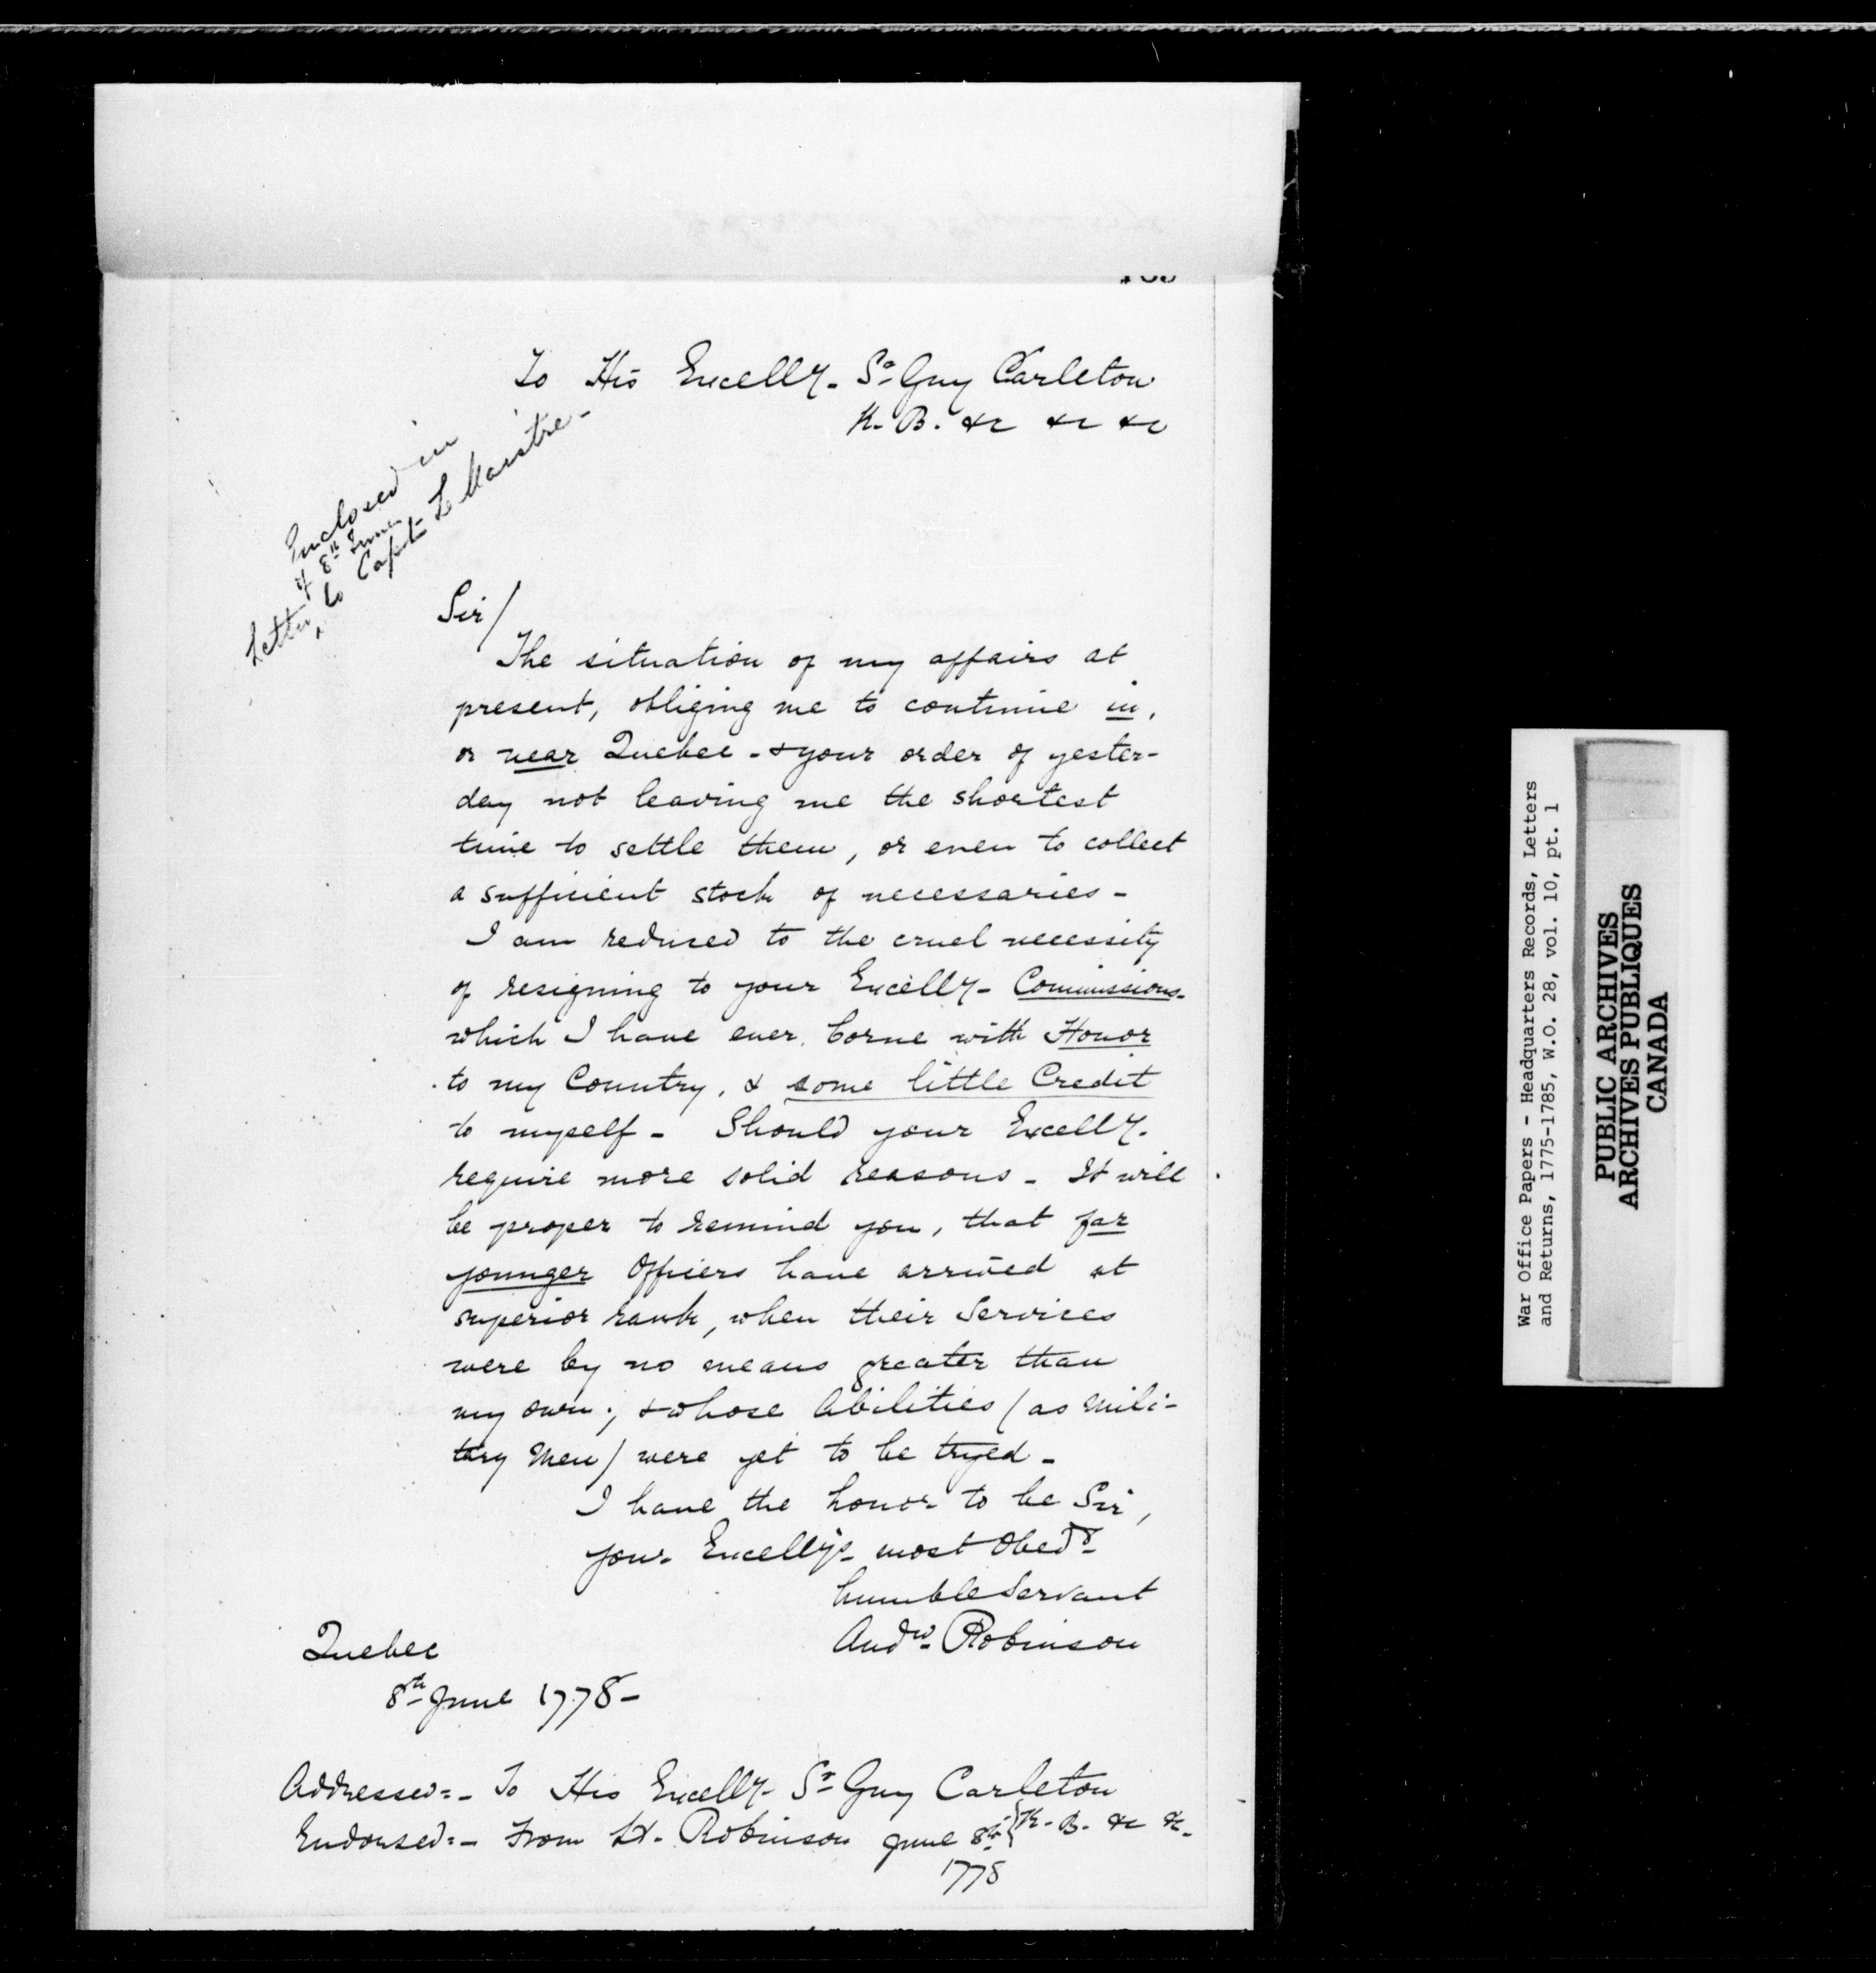 To His Excelly. Sr Guy Carleton
K. B. &c &c &c
Enclosed in
Letter of 8th June to Capt. Le Maistre -
Sir/
The situation of my affairs at
present, obliging me to continue in,
or near Quebec - & your order of yester-
day not leaving me the shortest
time to settle them, or even to collect
a sufficient stock of necessaries -
I am reduced to the cruel necessity
of resigning to your Excelly - Commissions -
which I have ever borne with Honor
to my Country, & some little Credit
to myself - Should your Excelly.
require more solid reasons - It will
be proper to remind you, that far
younger Officers have arrived at
superior rank, when their Services
were by no means greater than
my own; & whose Abilities (as Mili-
tary Men) were yet to be tryed -
I have the honor to be Sir,
your Excelly's most Obedt
humble Servant
Andw. Robinson
Quebec
8th June 1778 -
Addressed:- To His Excelly Sr Guy Carleton
K. B. &c &c.
Endorsed:- From Lt. Robinson June 8th
1778
War Office Papers - Headquarters Records, Letters
and Returns, 1775-1785, W.O. 28, vol. 10, pt. 1
PUBLIC ARCHIVES
ARCHIVES PUBLIQUES
CANADA